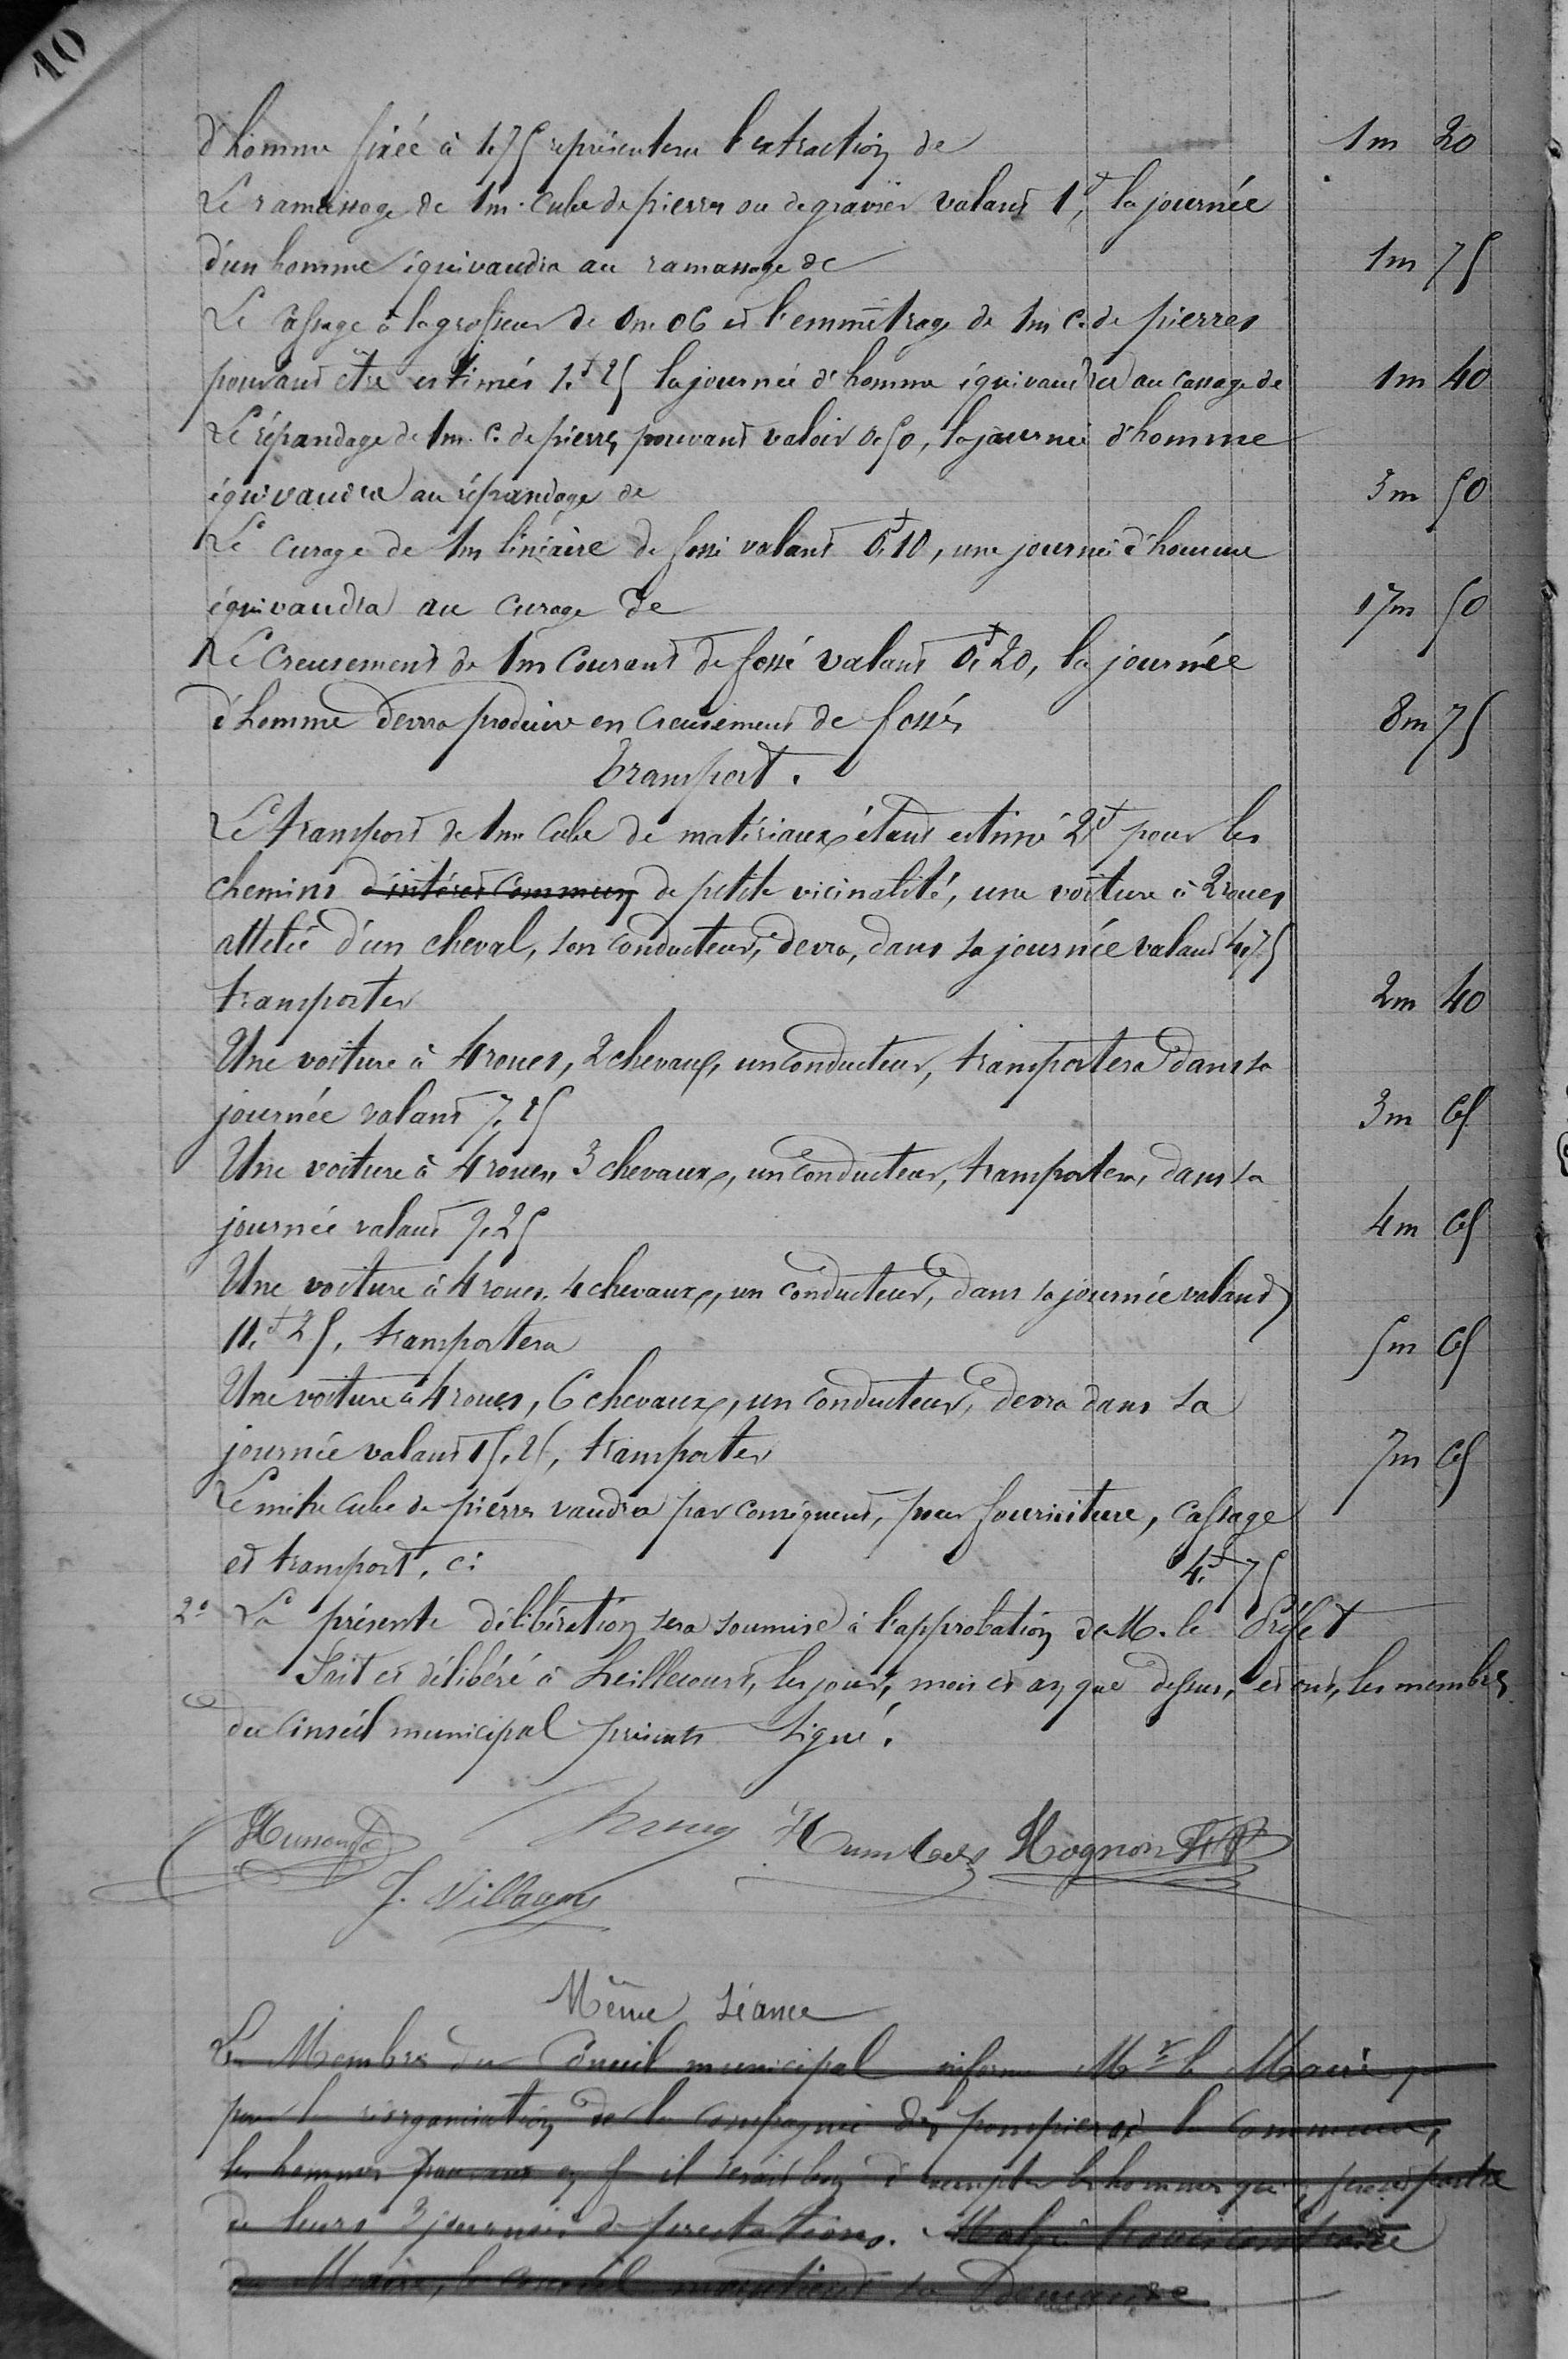 10
d'homme fixée à 1,75 représentera l'extraction de 1m 20
Le ramassage de 1m. cube de pierres ou de gravier valant 1f, la journée
d'un homme équivaudra au ramassage de 1m 75
Le cassage à la grosseur de 0m06 et l'emmétrage de 1m c. de pierres
pouvant être estimés 1f25 la journée d'homme équivaudra au cassage de 1m 40
Le répandage de 1m. c. de pierres pouvant valoir 0,50, la journée d'homme
équivaudra au répandage de 3m 50
Le curage de 1m linéaire de fossé valant 0f10, une journée d'homme
équivaudra au curage de 17m 50
Le creusement de 1m courant de fossé valant 0f20, la journée
d'homme devra produire en creusement de fossés 8m 75
Transport.
Le transport de 1m cube de matériaux étant estimé 2f pour les
chemins d'intérêt commun de petite vicinalité, une voiture à 2 roues
attelée d'un cheval, son conducteur, devra, dans sa journée valant 4,75
transporter 2m 40
Une voiture à 4 roues, 2 chevaux, un conducteur, transportera dans sa
journée valant 7,25 3m 65
Une voiture à 4 roues, 3 chevaux, un conducteur, transportera, dans sa
journée valant 9,25 4m 65
Une voiture à 4 roues, 4 chevaux, un conducteur, dans sa journée valant
11f25, transportera 5m 65
Une voiture à 4 roues, 6 chevaux, un conducteur, devra dans sa
journée valant 15,25, transporter 7m 65
Le mètre cube de pierres vaudra par conséquent, pour fourniture, cassage
et transport, ci 4f75
2° La présente délibération sera soumise à l'approbation de M. le Préfet
Fait et délibéré à Heillecourt, les jour, mois et an que dessus, et ont, les membres
du Conseil municipal présents signé.
Humbert Hognon
J. Villaume
Même séance
Les Membres du Conseil municipal informe Mr le Maire que
pour la réorganisation de la compagnie des pompiers de la commune,
les hommes il serait bon d'exempter les hommes qui feront partie
de leurs 3 journées de prestations. Malgré l'avis contraire
du Maire, le conseil maintient sa Demande